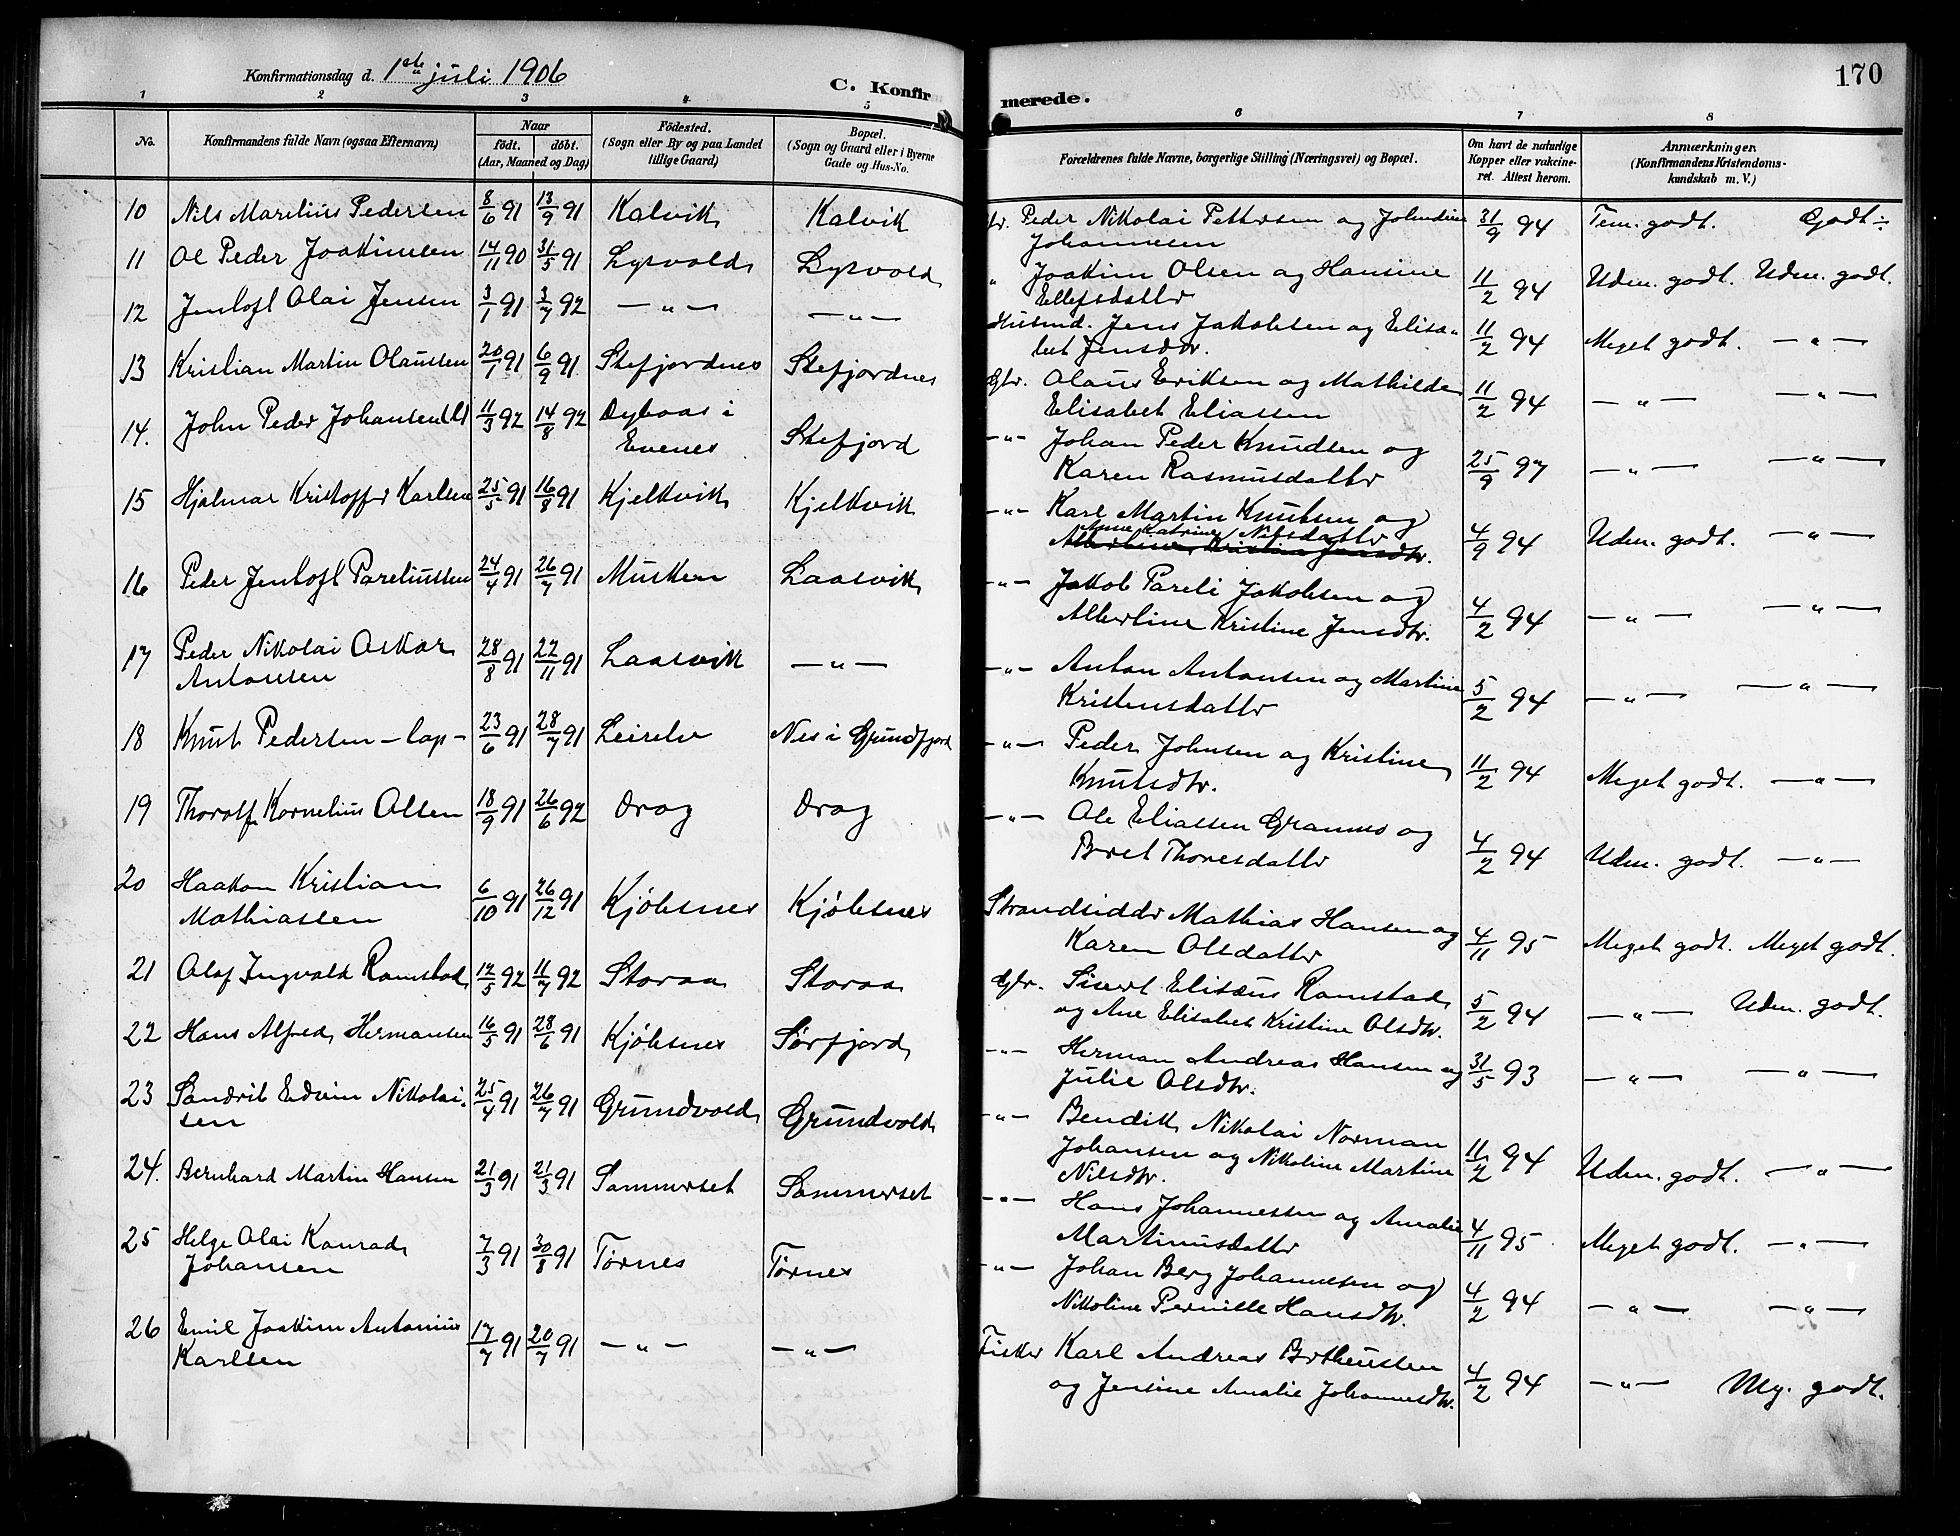 Konfirmationsdag d. 1ste juli 1906
C. Konfir
merede.
170
1 2 3 4 5 6 7 8
No. Konfirmandens fulde Navn (ogsaa Efternavn) Naar født. døbt. (Aar, Maaned og Dag)
Födested. (Sogn eller By og paa Landet tillige Gaard)
Bopæl. (Sogn og Gaard eller i Byerne Gade og Hus-No.
Forældrenes fulde Navne, borgerlige Stilling (Næringsvei) og Bopæl.
Om havt de naturlige Kopper eller vakcineret. Attest herom.
Anmærkninger. (Konfirmandens Kristendomskundskab m. V.)
10 Nils Marelius Pedersen 8/6 91 13/9 91 Kalvik Kalvik Peder Nikolai Pettersen og Johndine 31/9 94 Tem. godt. Godt ÷
Johannesen
11 Ol Peder Joakimsen 14/11 90 31/5 91 Lysvold Lysvold " Joakim Olsen og Hansine 11/2 94 Uden. godt. Uden. godt.
Ellefsdattr
12 Jentoft Olai Jensen 3/1 91 3/7 92 — " — — " — Husmd. Jens Jakobsen og Elisa- 11/2 94 Meget godt. — " —
bet Jensdtr.
13 Kristian Martin Olaussen 20/1 91 6/9 91 Stefjordnes Stefjordnes Gbr. Olaus Eriksen og Mathilde 11/2 94 — " — — " —
Elisabet Eliassen
14. John Peder Johansen 11/3 92 14/8 92 Dybaas i Stefjord — " — Johan Peder Knudsen og 25/9 97 — " — — " —
Evenes Karen Rasmusdattr
15 Hjalmar Kristoffer Karlsen 25/5 91 16/8 91 Kjelkvik Kjelkvik — " — Karl Martin Knutsen og 4/9 94 Uden. godt. — " —
Anne Katrine Nilsdattr
Albertine Kristina Jensdtr.
16 Peder Jentoft Pareliussen 24/4 91 26/7 91 Musken Laasvik — " — Jakob Pareli Jakobsen og 4/2 94 — " — — " —
Albertine Kristine Jensdtr.
17 Peder Nikolai Oskar 28/8 91 22/11 91 Laasvik — " — — " — Anton Antonsen og Martine 5/2 94 — " — — " —
Antonsen Kristensdattr
18 Knut Pedersen – lap – 23/6 91 28/7 91 Leirelv Nes i Grundfjord — " — Peder Johnsen og Kristine 11/2 94 Meget godt. — " —
Knutsdtr.
19 Thoralf Kornelius Olsen 18/9 91 26/6 92 Drag Drag — " — Ole Eliassen Granmo og 4/2 94 Uden. godt. — " —
Beret Thoresdattr
20 Haakon Kristian 6/10 91 26/12 91 Kjøbsnes Kjøbsnes Strandsiddr Mathias Hansen og 4/11 95 Meget godt. Meget godt.
Mathiassen Karen Olsdattr
21 Olaf Ingvald Ramstad 12/5 92 11/7 92 Storaa Storaa Gbr. Sivert Elisæus Ramstad 5/2 94 — " — Uden. godt.
og Ane Elisabet Kristine Olsdtr.
22 Hans Alfred Hermansen 16/5 91 28/6 91 Kjøbsnes Sørfjord — " — Herman Andreas Hansen og 31/5 93 — " — — " —
Julie Olsdtr.
23 Sandrik Edvin Nikolai- 25/4 91 26/7 91 Grundvold Grundvold — " — Bendik Nikolai Norman
sen Johansen og Nikoline Martine 11/2 94 Uden. godt. — " —
Nilsdtr.
24. Bernhard Martin Hansen 21/3 91 21/3 91 Sommerset Sommerset — " — Hans Johannessen og Amalie 4/11 95 Meget godt. — " —
Martinusdattr
25 Helge Olai Konrad 7/3 91 30/8 91 Tørnes Tørnes — " — Johan Berg Johannesen og 4/2 94 — " — — " —
Johansen Nikoline Pernille Hansdtr.
26 Emil Joakim Antonius 17/7 91 20/7 91 — " — — " — Fisker Karl Andreas Bertheussen 4/2 94 — " — My. godt.
Karlsen og Jensine Amalie Johannesdtr.